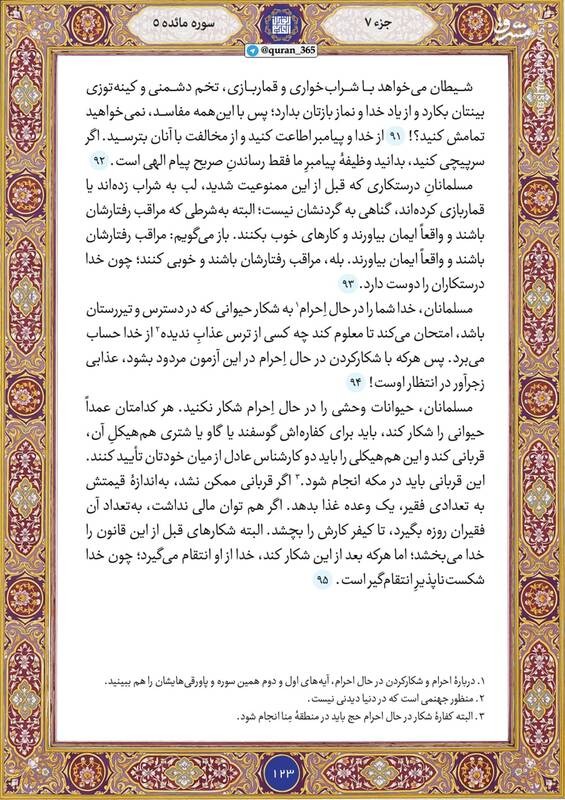 جزء ۷
سوره مائده ۵
@quran_365
مشرق
شیطان می‌خواهد با شراب‌خواری و قماربازی، تخم دشمنی و کینه‌توزی
بینتان بکارد و از یاد خدا و نماز بازتان بدارد؛ پس با این‌همه مفاسد، نمی‌خواهید
تمامش کنید؟! ۹۱ از خدا و پیامبر اطاعت کنید و از مخالفت با آنان بترسید. اگر
سرپیچی کنید، بدانید وظیفهٔ پیامبرِ ما فقط رساندنِ صریح پیام الهی است. ۹۲
مسلمانانِ درستکاری که قبل از این ممنوعیت شدید، لب به شراب زده‌اند یا
قماربازی کرده‌اند، گناهی به گردنشان نیست؛ البته به‌شرطی که مراقب رفتارشان
باشند و واقعاً ایمان بیاورند و کارهای خوب بکنند. باز می‌گویم: مراقب رفتارشان
باشند و واقعاً ایمان بیاورند. بله، مراقب رفتارشان باشند و خوبی کنند؛ چون خدا
درستکاران را دوست دارد. ۹۳
مسلمانان، خدا شما را در حال اِحرام۱ به شکار حیوانی که در دسترس و تیررستان
باشد، امتحان می‌کند تا معلوم کند چه کسی از ترس عذابِ ندیده۲ از خدا حساب
می‌برد. پس هرکه با شکارکردن در حال اِحرام در این آزمون مردود بشود، عذابی
زجرآور در انتظار اوست! ۹۴
مسلمانان، حیوانات وحشی را در حال اِحرام شکار نکنید. هر کدامتان عمداً
حیوانی را شکار کند، باید برای کفاره‌اش گوسفند یا گاو یا شتری هم‌هیکلِ آن،
قربانی کند و این هم‌هیکلی را باید دو کارشناس عادل از میان خودتان تأیید کنند.
این قربانی باید در مکه انجام شود.۳ اگر قربانی ممکن نشد، به‌اندازهٔ قیمتش
به تعدادی فقیر، یک وعده غذا بدهد. اگر هم توان مالی نداشت، به‌تعداد آن
فقیران روزه بگیرد، تا کیفر کارش را بچشد. البته شکارهای قبل از این قانون را
خدا می‌بخشد؛ اما هرکه بعد از این شکار کند، خدا از او انتقام می‌گیرد؛ چون خدا
شکست‌ناپذیرِ انتقام‌گیر است. ۹۵
۱. دربارهٔ احرام و شکارکردن در حال احرام، آیه‌های اول و دوم همین سوره و پاورقی‌هایشان را هم ببینید.
۲. منظور جهنمی است که در دنیا دیدنی نیست.
۳. البته کفارهٔ شکار در حال احرام حج باید در منطقهٔ مِنا انجام شود.
۱۲۳